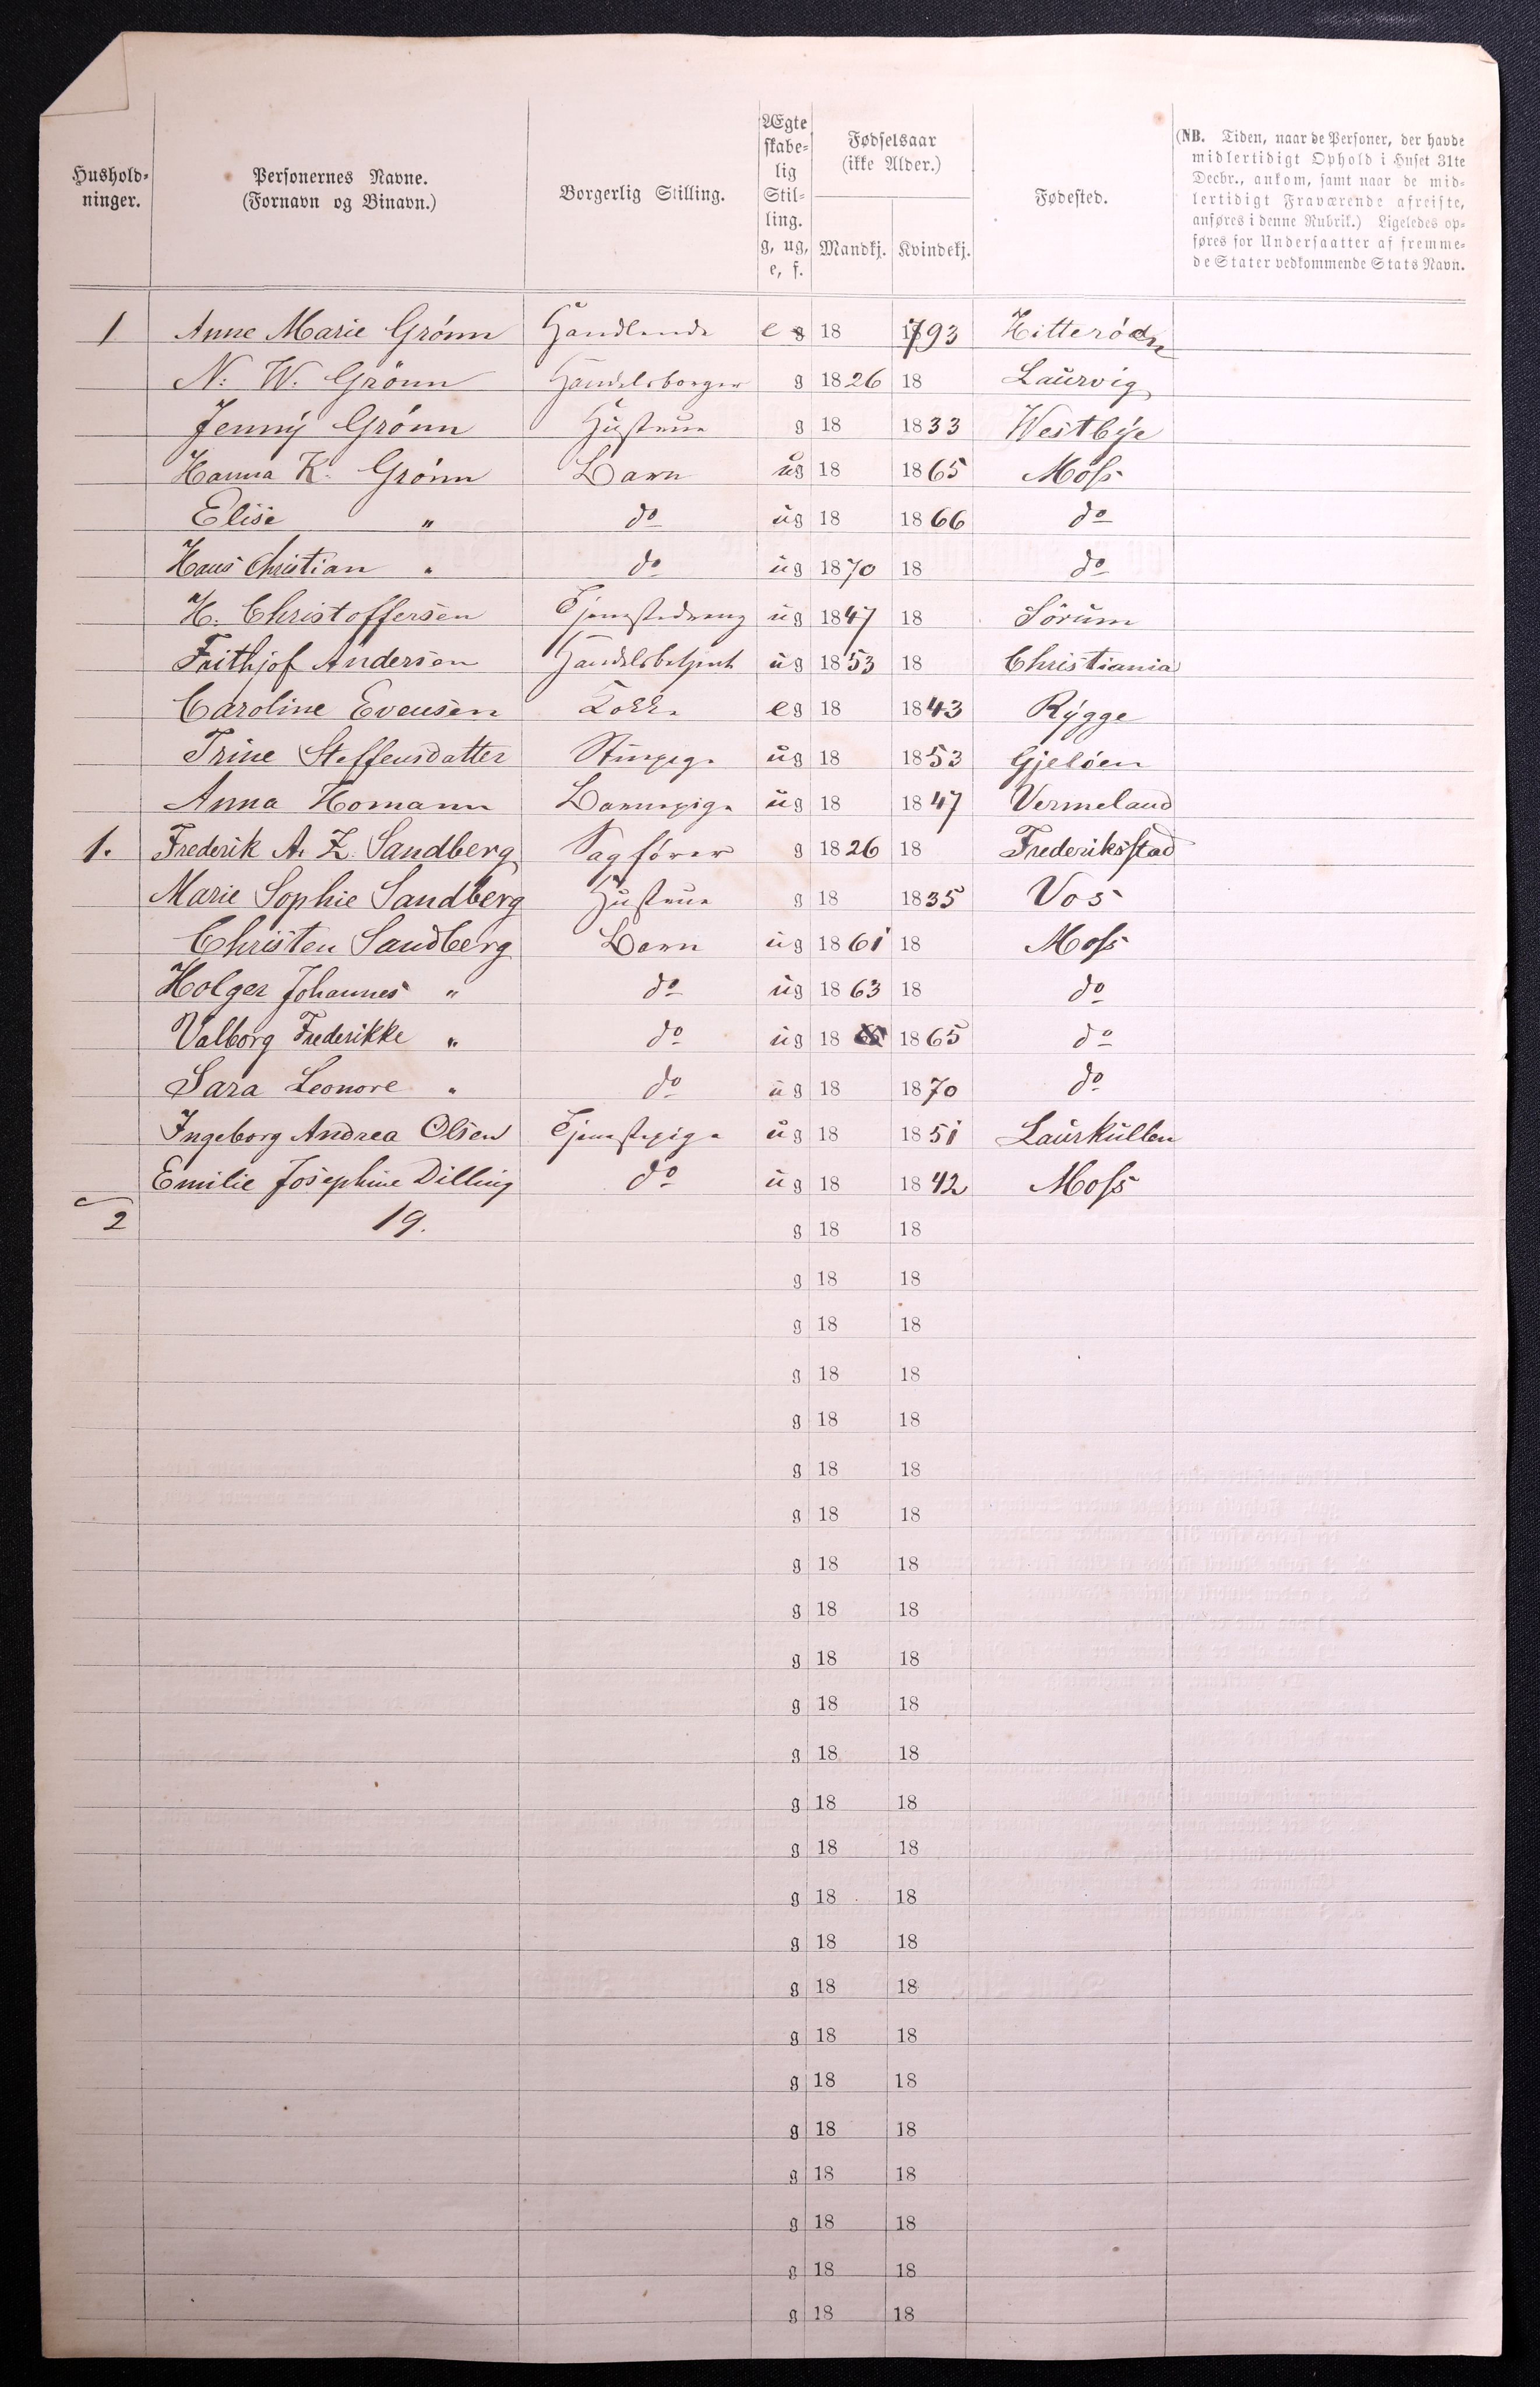 Hushold-
ninger.
Personernes Navne.
(Fornavn og Binavn.)
Borgerlig Stilling.
Ægte
skabe-
lig
Stil-
ling.
g, ug,
e, f.
Fødselsaar
(ikke Alder.)
Mandkj. Kvindekj.
Fødested.
(NB. Tiden, naar de Personer, der havde
midlertidigt Ophold i Huset 31te
Decbr., ankom, samt naar de mid-
lertidigt Fraværende afreiste,
anføres i denne Rubrik.) Ligeledes op-
føres for Undersaatter af fremme-
de Stater vedkommende Stats Navn.
1 Anne Marie Grónn Handlende e g 18 1793 Hitteröden
N: W. Grönn Handelsborger g 1826 18 Laurvig
Jenny Grónn Hustrue g 18 1833 Westbye
Hanna K. Grónn Barn ug 18 1865 Moss
Elise " do ug 18 1866 do
Hans Christian " do ug 1870 18 do
H. Christoffersen Tjenestedreng ug 1847 18 Sórum
Frithjof Andersen Handelsbetjent ug 1853 18 Christiania
Caroline Evensen Kokke eg 18 1843 Rygge
Trine Steffensdatter Stuepige ug 18 1853 Gjelóen
Anna Homann Barnepige ug 18 1847 Vermeland
1. Frederik A. Z. Sandberg Sagförer g 1826 18 Frederiksstad
Marie Sophie Sandberg Hustrue g 18 1835 Vos
Christen Sandberg Barn ug 1861 18 Moss
Holger Johannes " do ug 1863 18 do
Valborg Frederikke " do ug 18 1865 do
Sara Leonore " do ug 18 1870 do
Ingeborg Andrea Olsen Tjenestepige ug 18 1851 Laurkullen
Emilie Josephine Dilling do ug 18 1842 Moss
2 19. g 18 18
g 18 18
g 18 18
g 18 18
g 18 18
g 18 18
g 18 18
g 18 18
g 18 18
g 18 18
g 18 18
g 18 18
g 18 18
g 18 18
g 18 18
g 18 18
g 18 18
g 18 18
g 18 18
g 18 18
g 18 18
g 18 18
g 18 18
g 18 18